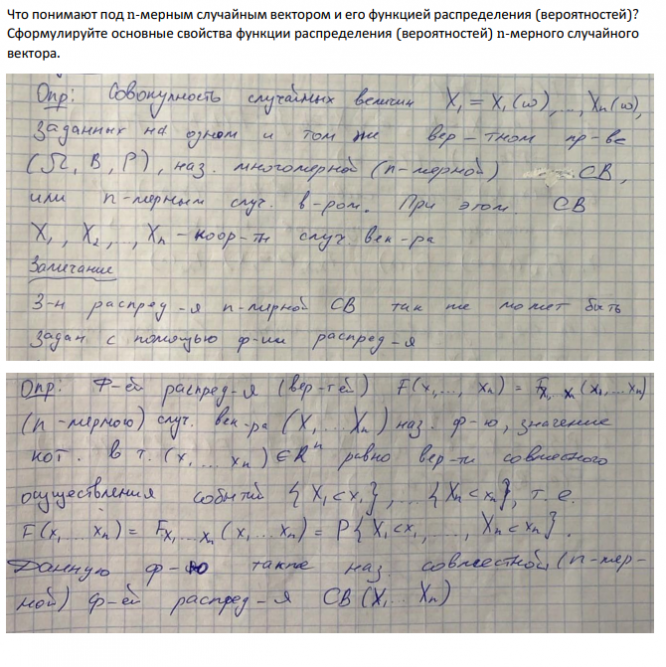 Что понимают под n-мерным случайным вектором и его функцией распределения (вероятностей)?
Сформулируйте основные свойства функции распределения (вероятностей) n-мерного случайного
вектора.
Опр: Совокупность случайных величин X₁ = X₁(ω),..., Xₙ(ω),
заданных на одном и том же вер-тном пр-ве
(Ω, B, P), наз. многомерной (n-мерной) СВ,
или n-мерным случ. в-ром. При этом СВ
X₁, X₂, .., Xₙ - коор-ты случ. век-ра
Замечание
З-н распред-я n-мерной СВ так же может быть
задан с помощью ф-ии распред-я
Опр: Ф-ей распред-я (вер-тей) F(x₁,..., xₙ) = F_X₁ Xₙ (x₁,...xₙ)
(n-мерного) случ. век-ра (X₁...Xₙ) наз. ф-ю, значение
кот. в т. (x₁,... xₙ) ∈ Rⁿ равно вер-ти совместного
осуществления событий {X₁<x₁},...{Xₙ<xₙ}, т.е.
F(x₁...xₙ) = F_X₁...Xₙ (x₁,...xₙ) = P{X₁<x₁,..., Xₙ<xₙ}.
Данную ф-ю также наз совместной (n-мер-
ной) ф-ей распред-я СВ (X₁...Xₙ)